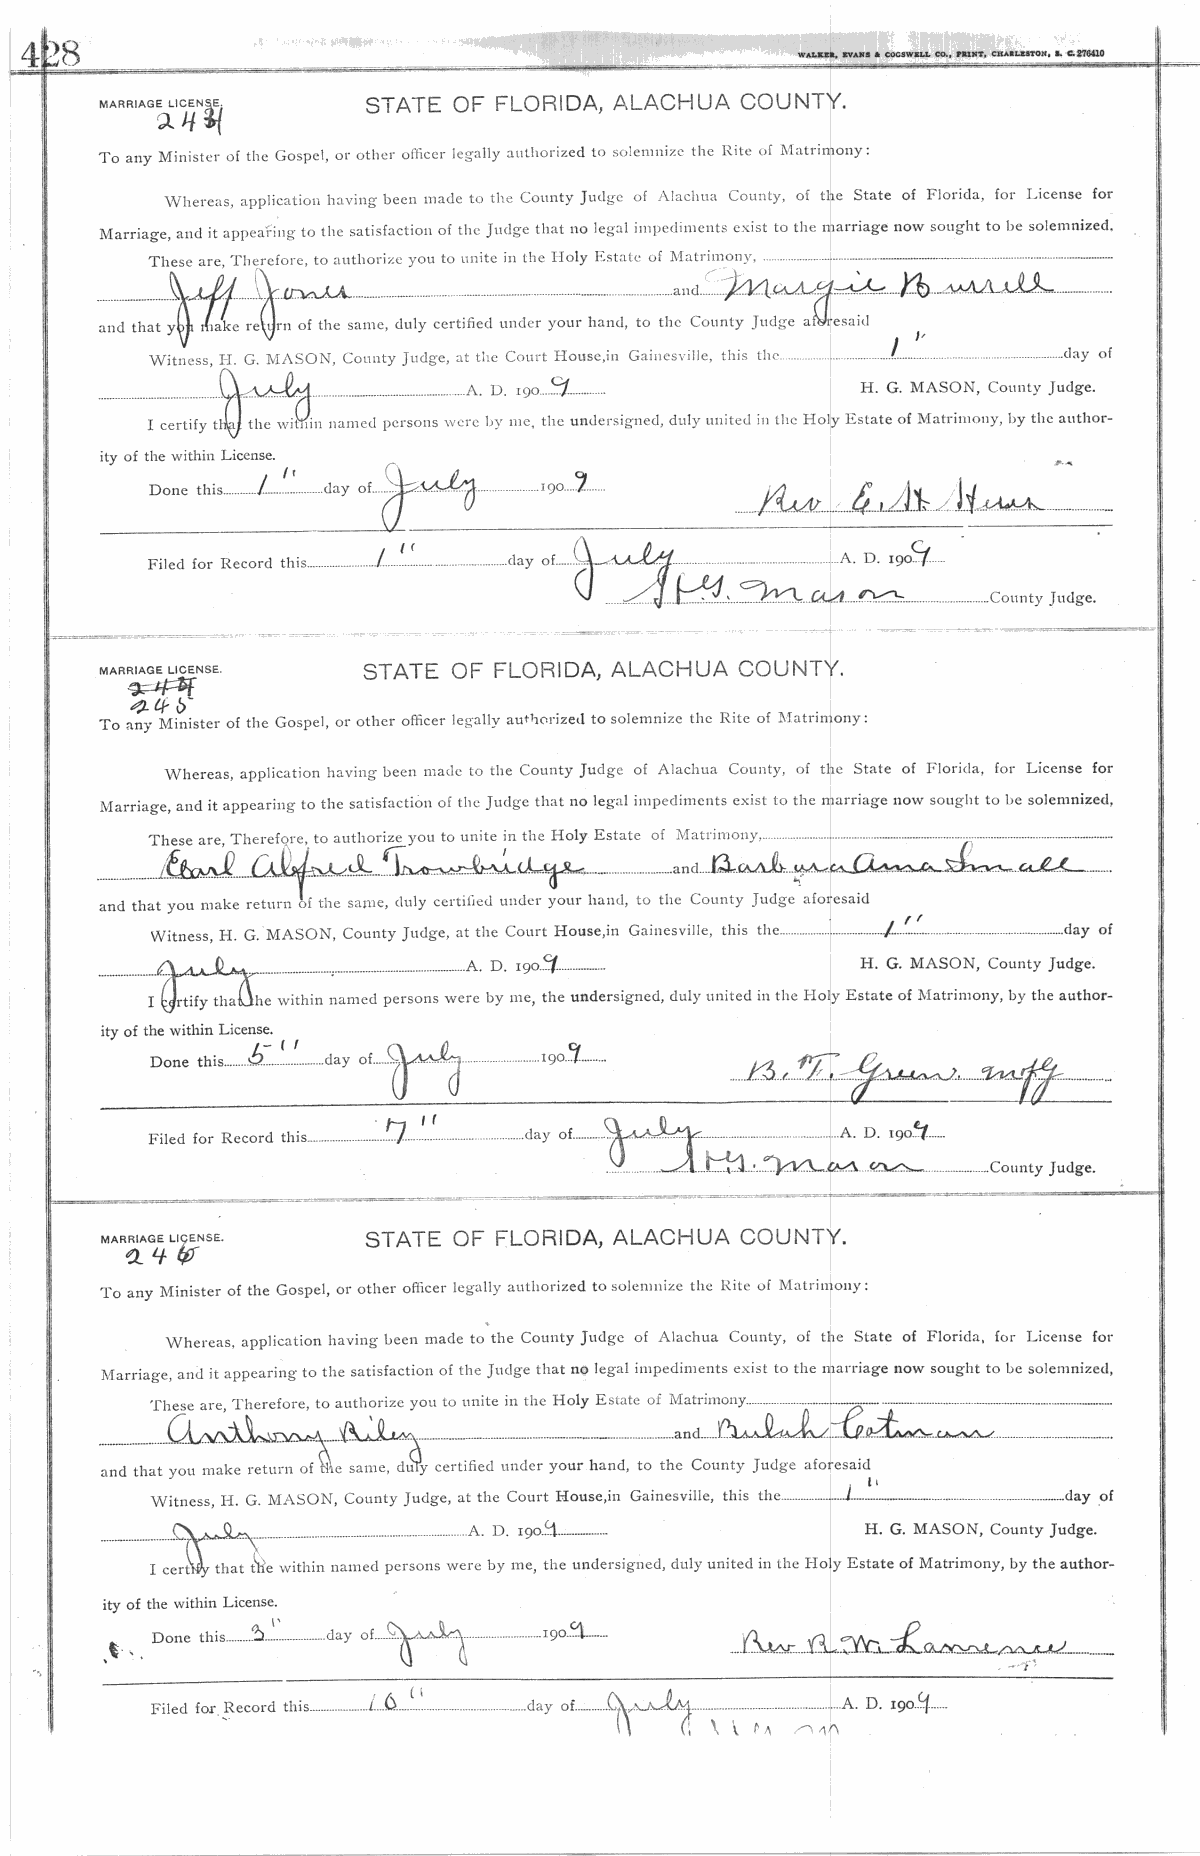 428
WALKER, EVANS & COGSWELL CO., PRINT, CHARLESTON, S. C. 276410
MARRIAGE LICENSE.
STATE OF FLORIDA, ALACHUA COUNTY.
244
To any Minister of the Gospel, or other officer legally authorized to solemnize the Rite of Matrimony:
Whereas, application having been made to the County Judge of Alachua County, of the State of Florida, for License for
Marriage, and it appearing to the satisfaction of the Judge that no legal impediments exist to the marriage now sought to be solemnized.
These are, Therefore, to authorize you to unite in the Holy Estate of Matrimony,
Jeff Jones and Margie Burrell
and that you make return of the same, duly certified under your hand, to the County Judge aforesaid
Witness, H. G. MASON, County Judge, at the Court House, in Gainesville, this the 1" day of
July A. D. 1909 H. G. MASON, County Judge.
I certify that the within named persons were by me, the undersigned, duly united in the Holy Estate of Matrimony, by the author-
ity of the within License.
Done this 1" day of July 1909
Rev E. H.
Filed for Record this 1" day of July A. D. 1909
H.G. Mason County Judge.
MARRIAGE LICENSE.
STATE OF FLORIDA, ALACHUA COUNTY.
244
245
To any Minister of the Gospel, or other officer legally authorized to solemnize the Rite of Matrimony:
Whereas, application having been made to the County Judge of Alachua County, of the State of Florida, for License for
Marriage, and it appearing to the satisfaction of the Judge that no legal impediments exist to the marriage now sought to be solemnized,
These are, Therefore, to authorize you to unite in the Holy Estate of Matrimony,
Earl Alfred Trowbridge and Barbara Ama Small
and that you make return of the same, duly certified under your hand, to the County Judge aforesaid
Witness, H. G. MASON, County Judge, at the Court House, in Gainesville, this the 1" day of
July A. D. 1909 H. G. MASON, County Judge.
I certify that the within named persons were by me, the undersigned, duly united in the Holy Estate of Matrimony, by the author-
ity of the within License.
Done this 5" day of July 1909
B. T. Green. MofG
Filed for Record this 7" day of July A. D. 1909
H.G. Mason County Judge.
MARRIAGE LICENSE.
STATE OF FLORIDA, ALACHUA COUNTY.
246
To any Minister of the Gospel, or other officer legally authorized to solemnize the Rite of Matrimony:
Whereas, application having been made to the County Judge of Alachua County, of the State of Florida, for License for
Marriage, and it appearing to the satisfaction of the Judge that no legal impediments exist to the marriage now sought to be solemnized,
These are, Therefore, to authorize you to unite in the Holy Estate of Matrimony
Anthony Riley and Bulah Cotman
and that you make return of the same, duly certified under your hand, to the County Judge aforesaid
Witness, H. G. MASON, County Judge, at the Court House, in Gainesville, this the 1" day of
July A. D. 1909 H. G. MASON, County Judge.
I certify that the within named persons were by me, the undersigned, duly united in the Holy Estate of Matrimony, by the author-
ity of the within License.
Done this 3" day of July 1909
Rev R. W. Lawrence
Filed for Record this 10" day of July A. D. 1909